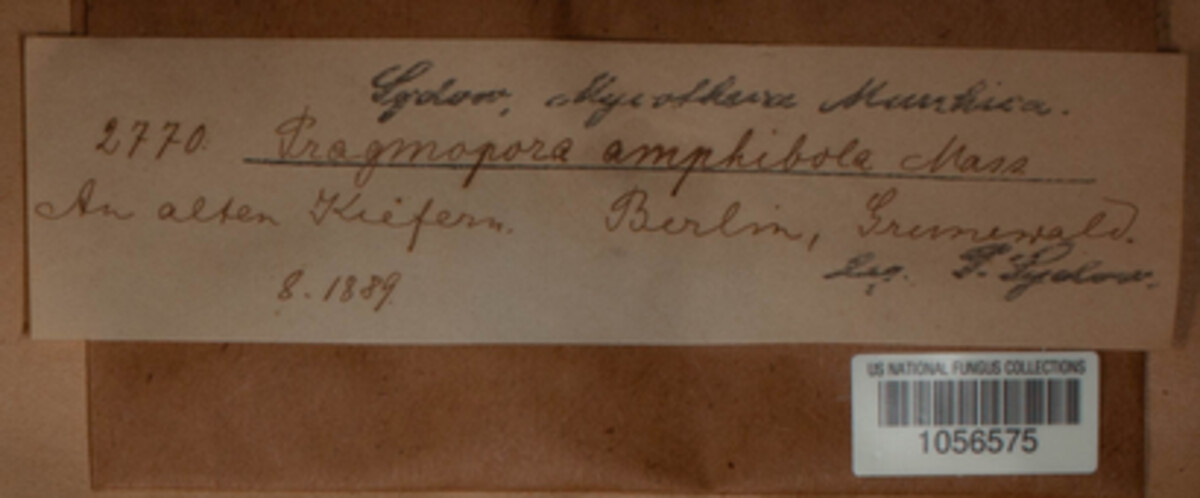 Sydow, Mycotheca Marchica.
2770. Pragmopora amphibola Mass
An alten Kiefern. Berlin, Grunewald.
Leg. P. Sydow.
8. 1889
US NATIONAL FUNGUS COLLECTIONS
1056575